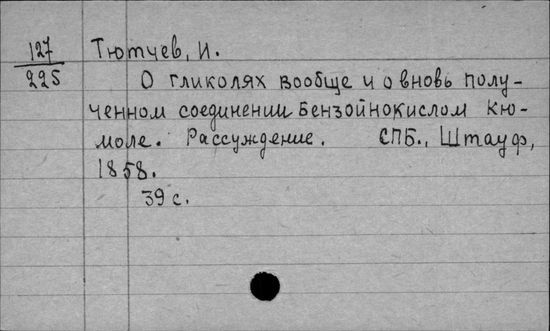 127
225
Тютчев, И.
О гликолях вообще и о вновь полу-
ченном соединении Бензойнокислом Кю-
моле. Рассуждение. СПБ., Штауф,
1858.
39 с.